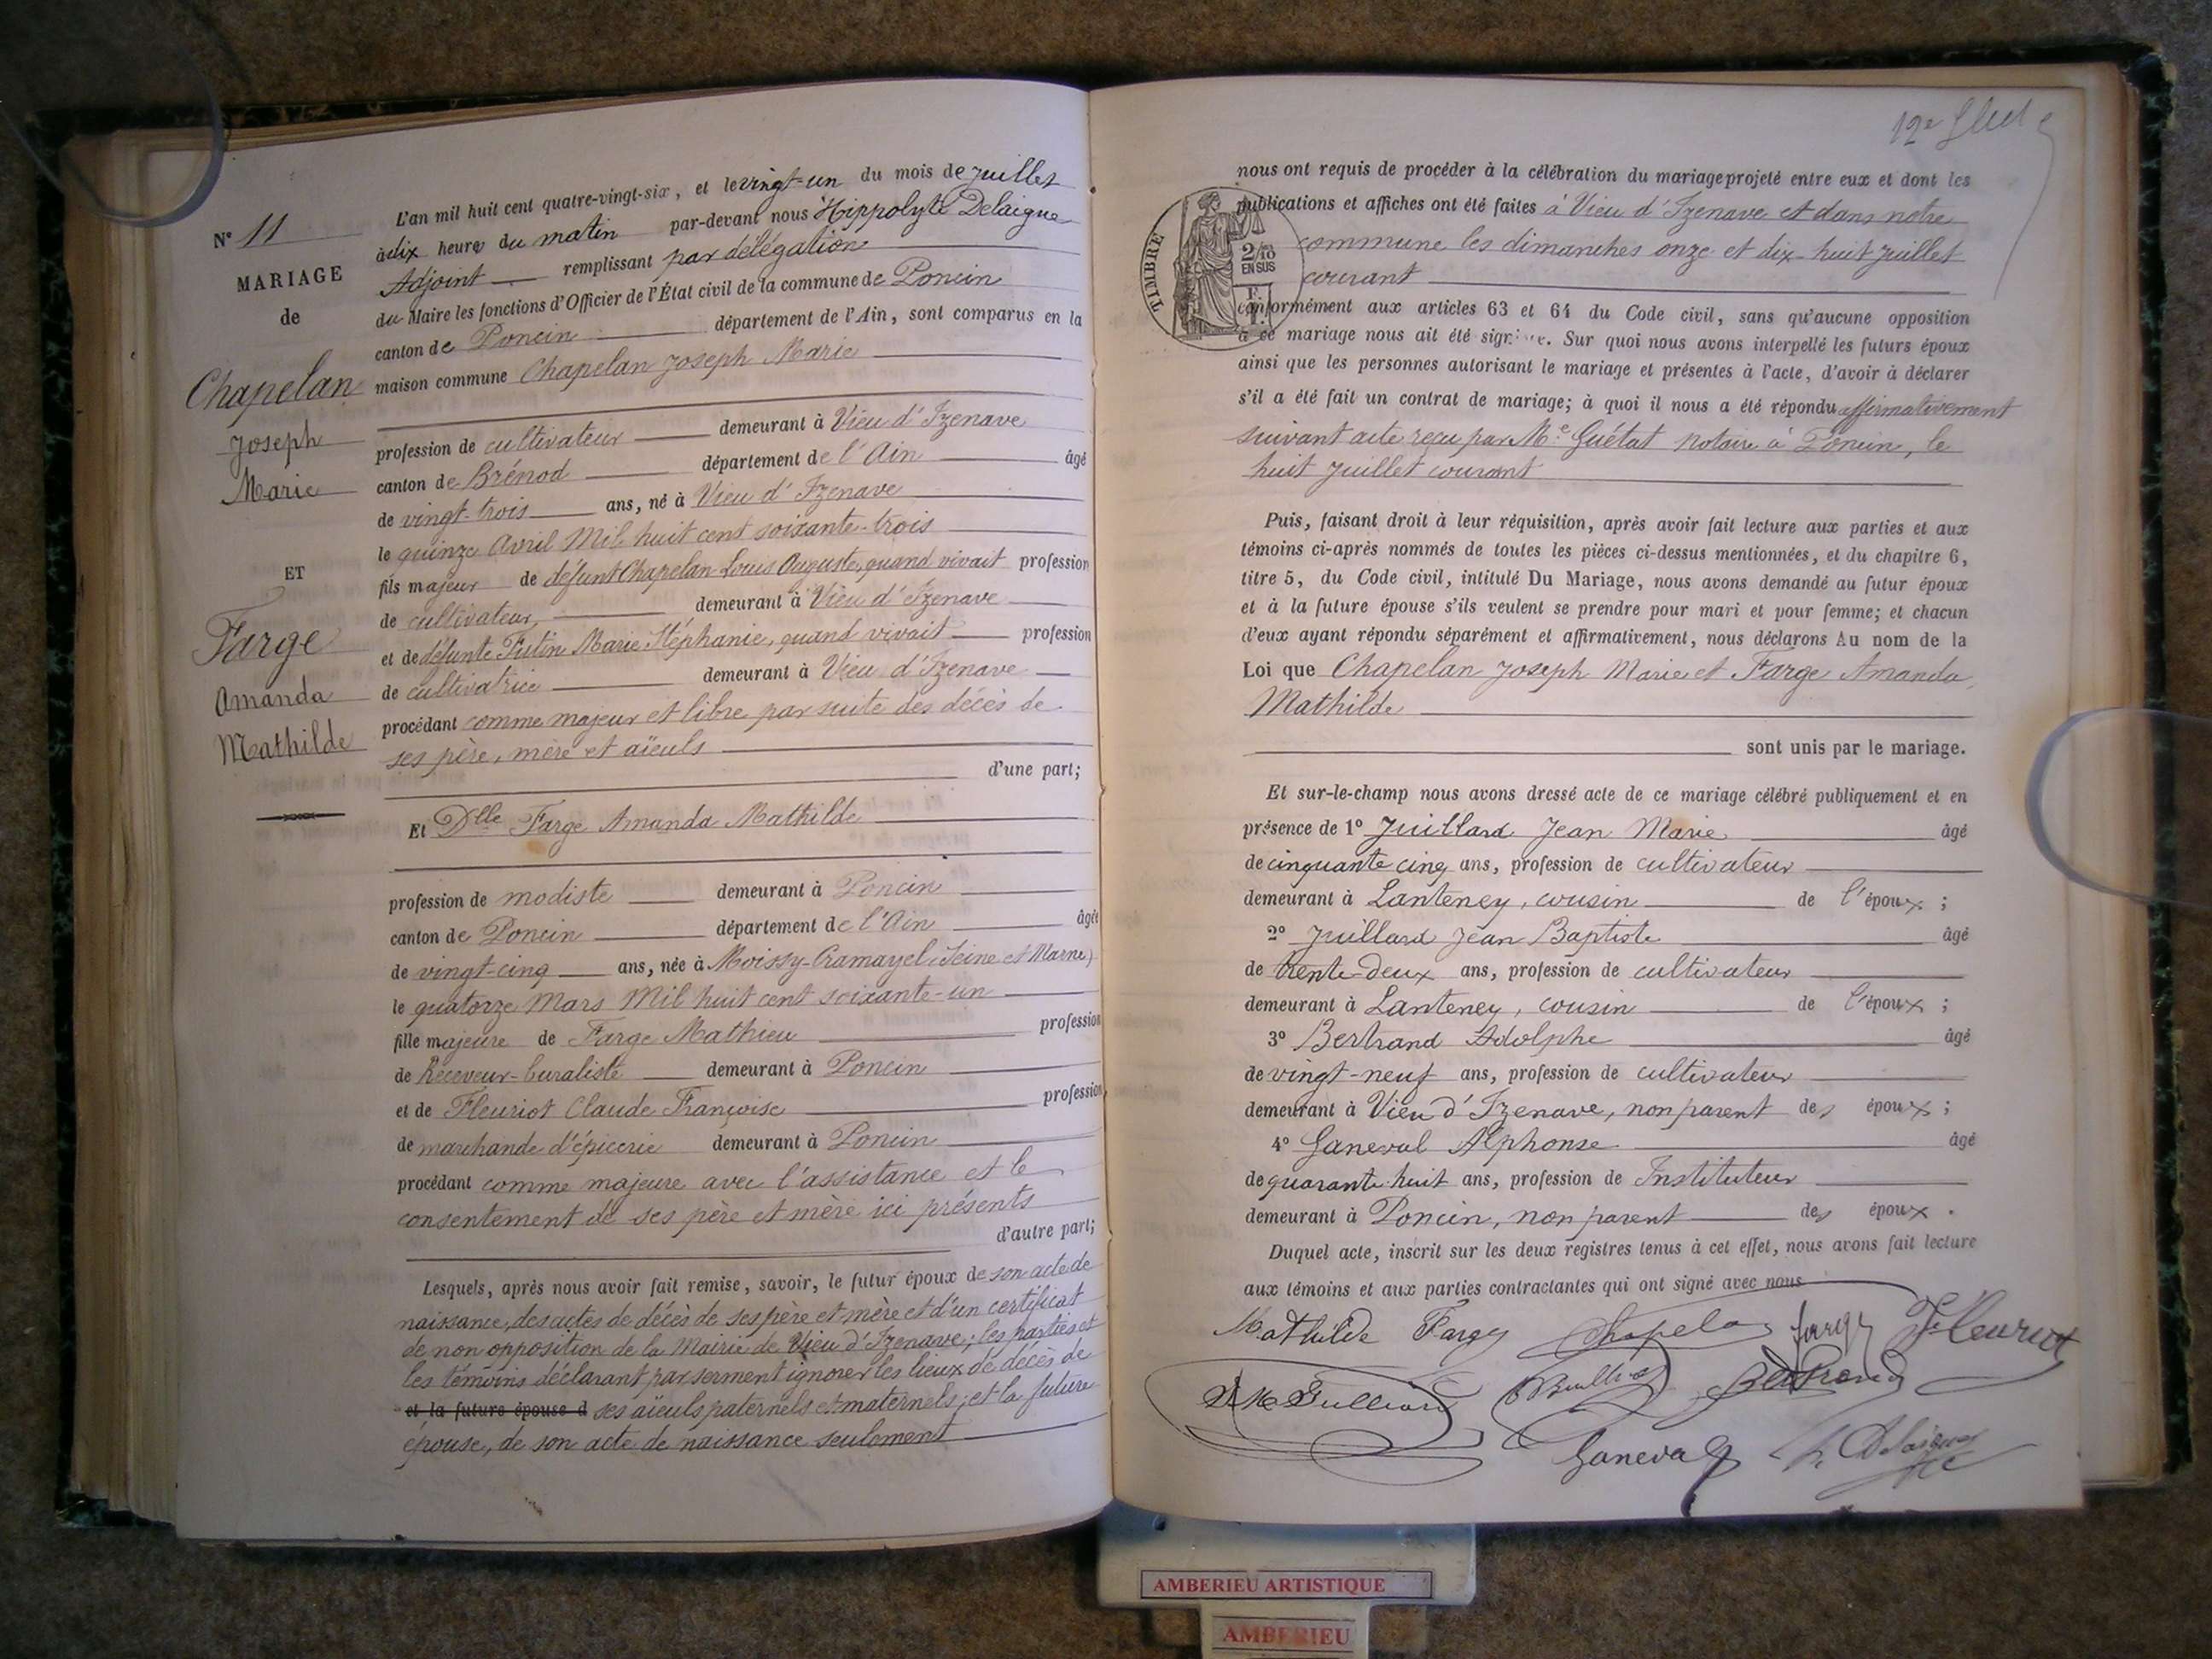 N° 11
MARIAGE
de
Chapelan
Joseph
Marie
ET
Farge
Amanda
Mathilde
L'an mil huit cent quatre-vingt-six, et le vingt-un du mois de juillet
à dix heures du matin par-devant nous Hippolyte Delaigue
Adjoint remplissant par délégation
du Maire les fonctions d'Officier de l'État civil de la commune de Poncin
canton de Poncin département de l'Ain, sont comparus en la
maison commune Chapelan Joseph Marie
profession de cultivateur demeurant à Vieu d'Izenave
canton de Brénod département de l'Ain âgé
de vingt-trois ans, né à Vieu d'Izenave
le quinze Avril Mil huit cent soixante-trois
fils majeur de défunt Chapelan Louis Auguste, quand vivait profession
de cultivateur, demeurant à Vieu d'Izenave
et de défunte Marie Stéphanie, quand vivait profession
de cultivatrice demeurant à Vieu d'Izenave
procédant comme majeur et libre par suite des décès de
ses père, mère et aïeuls
d'une part;
Et Dlle Farge Amanda Mathilde
profession de modiste demeurant à Poncin
canton de Poncin département de l'Ain âgée
de vingt-cinq ans, née à Moissy-Cramayel (Seine et Marne)
le quatorze Mars Mil huit cent soixante-un
fille majeure de Farge Mathieu profession
de Receveur-buraliste demeurant à Poncin
et de Fleuriot Claude Françoise profession
de marchande d'épicerie demeurant à Poncin
procédant comme majeure avec l'assistance et le
consentement de ses père et mère ici présents
d'autre part;
Lesquels, après nous avoir fait remise, savoir, le futur époux de son acte de
naissance, des actes de décès de ses père et mère et d'un certificat
de non opposition de la Mairie de Vieu d'Izenave; les parties et
les témoins déclarant par serment ignorer les lieux de décès de
et la future épouse d ses aïeuls paternels et maternels; et la future
épouse, de son acte de naissance seulement
12e
TIMBRE
2/10
EN SUS
nous ont requis de procéder à la célébration du mariage projeté entre eux et dont les
publications et affiches ont été faites à Vieu d'Izenave et dans notre
commune les dimanches onze et dix-huit juillet
courant
conformément aux articles 63 et 64 du Code civil, sans qu'aucune opposition
à ce mariage nous ait été signifiée. Sur quoi nous avons interpellé les futurs époux
ainsi que les personnes autorisant le mariage et présentes à l'acte, d'avoir à déclarer
s'il a été fait un contrat de mariage; à quoi il nous a été répondu affirmativement
suivant acte reçu par Me Guétat notaire à Poncin, le
huit juillet courant
Puis, faisant droit à leur réquisition, après avoir fait lecture aux parties et aux
témoins ci-après nommés de toutes les pièces ci-dessus mentionnées, et du chapitre 6,
titre 5, du Code civil, intitulé Du Mariage, nous avons demandé au futur époux
et à la future épouse s'ils veulent se prendre pour mari et pour femme; et chacun
d'eux ayant répondu séparément et affirmativement, nous déclarons Au nom de la
Loi que Chapelan Joseph Marie et Farge Amanda
Mathilde
sont unis par le mariage.
Et sur-le-champ nous avons dressé acte de ce mariage célébré publiquement et en
présence de 1° Juillard Jean Marie âgé
de cinquante cinq ans, profession de cultivateur
demeurant à Lanteney, cousin de l'époux;
2° Juillard Jean Baptiste âgé
de trente-deux ans, profession de cultivateur
demeurant à Lanteney, cousin de l'époux;
3° Bertrand Adolphe âgé
de vingt-neuf ans, profession de cultivateur
demeurant à Vieu d'Izenave, non parent des époux;
4° Ganeval Alphonse âgé
de quarante-huit ans, profession de Instituteur
demeurant à Poncin, non parent des époux.
Duquel acte, inscrit sur les deux registres tenus à cet effet, nous avons fait lecture
aux témoins et aux parties contractantes qui ont signé avec nous
Mathilde Farge Chapelan Farge Fleuriot
Bertrand
Ganeval H. Delaigue
AMBERIEU ARTISTIQUE
AMBERIEU